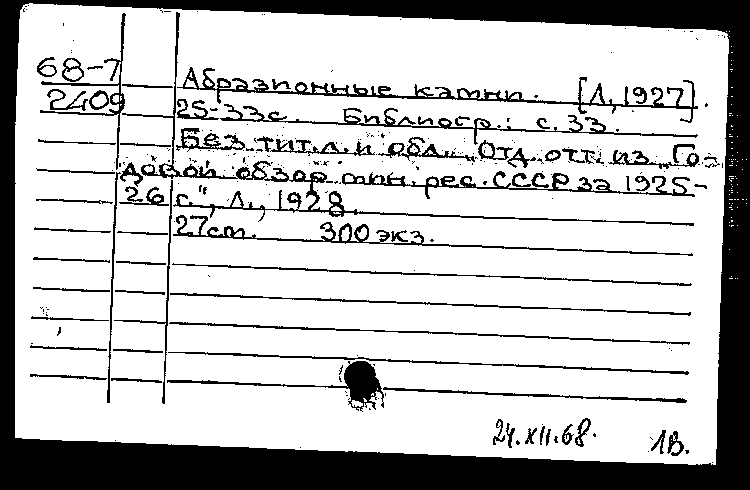 68-7 Абразионные камни. [Л., 1927].
2409 25-33с. Библиогр.: с. 33.
Без тит. л. и обл. "Отд. отт. из "Го-
довой обзор мин. рес. СССР за 1925-
26 г.", Л., 1928.
27см. 300 экз.
24.XII.68. 1В.